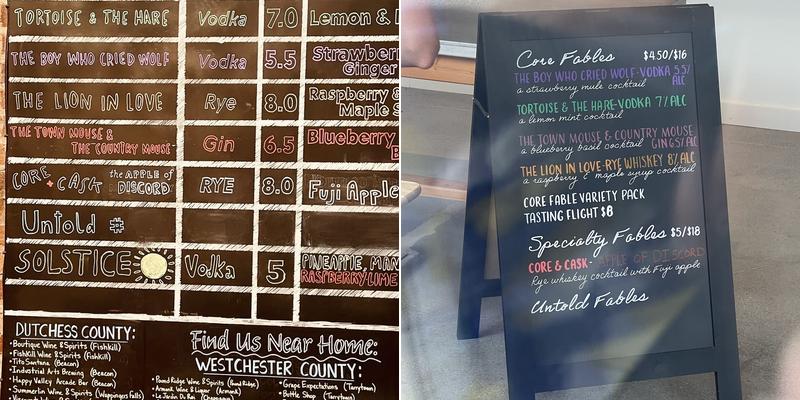 TORTOISE & THE HARE Vodka 7.0 Lemon &
THE BOY WHO CRIED WOLF Vodka 5.5 Strawberry
Ginger
THE LION IN LOVE Rye 8.0 Raspberry &
Maple S
THE TOWN MOUSE &
THE COUNTRY MOUSE Gin 6.5 Blueberry
B
CORE + CASK the APPLE OF
DISCORD RYE 8.0 Fuji Apple
Untold #
SOLSTICE Vodka 5 PINEAPPLE, MAN
RASPBERRY-LIME
DUTCHESS COUNTY:
• Boutique Wine & Spirits (Fishkill)
• Fishkill Wine & Spirits (Fishkill)
• Tito Santana (Beacon)
• Industrial Arts Brewing (Beacon)
• Happy Valley Arcade Bar (Beacon)
• Summerlin Wine & Spirits (Wappingers Falls)
Find Us Near Home:
WESTCHESTER COUNTY:
• Pound Ridge Wine & Spirits (Pound Ridge)
• Armonk Wine & Liquor (Armonk)
• Le Jardin Du Roi (Chappaqua)
• Grape Expectations (Tarrytown)
• Bottle Shop (Tarrytown)
Core Fables $4.50/$16
THE BOY WHO CRIED WOLF-VODKA 5.5/
ALC
a strawberry mule cocktail
TORTOISE & THE HARE-VODKA 7/.ALC
a lemon mint cocktail
THE TOWN MOUSE & COUNTRY MOUSE
a blueberry basil cocktail GIN 6.5/.ALC
THE LION IN LOVE-RYE WHISKEY 8/.ALC
a raspberry & maple syrup cocktail
CORE FABLE VARIETY PACK
TASTING FLIGHT $8
Specialty Fables $5/$18
CORE & CASK- APPLE OF DISCORD
Rye whiskey cocktail with Fuji apple
Untold Fables